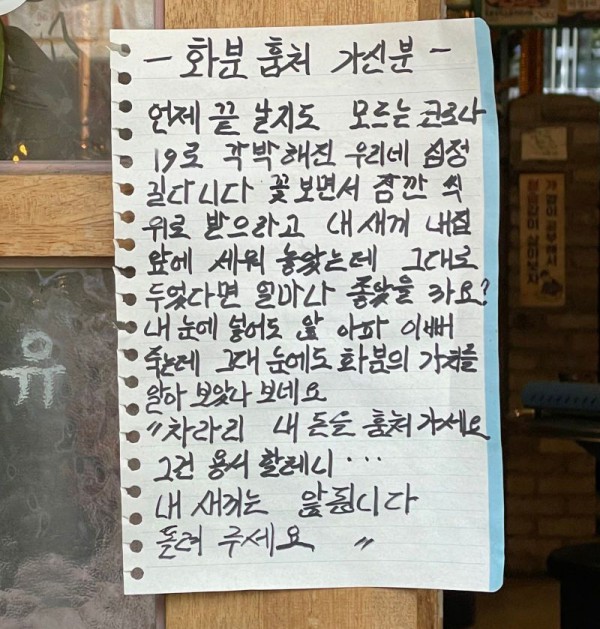 - 화분 훔쳐 가신분 -
언제 끝 날지도 모르는 코로나
19로 각박해진 우리네 심정
길다니다 꽃 보면서 잠깐 씩
위로 받으라고 내새끼 내집
앞에 세워 놓았는데 그대로
두었다면 얼마나 좋았을 까요?
내 눈에 넣어도 앞 아파 이뻐
죽는데 그대 눈에도 화붐의 가치를
알아 보았나 보네요
"차라리 내 돈을 훔쳐가세요
그건 용서 할테니...
내 새끼는 앞됩니다
돌려 주세요 "
유
가 없이 공부해서